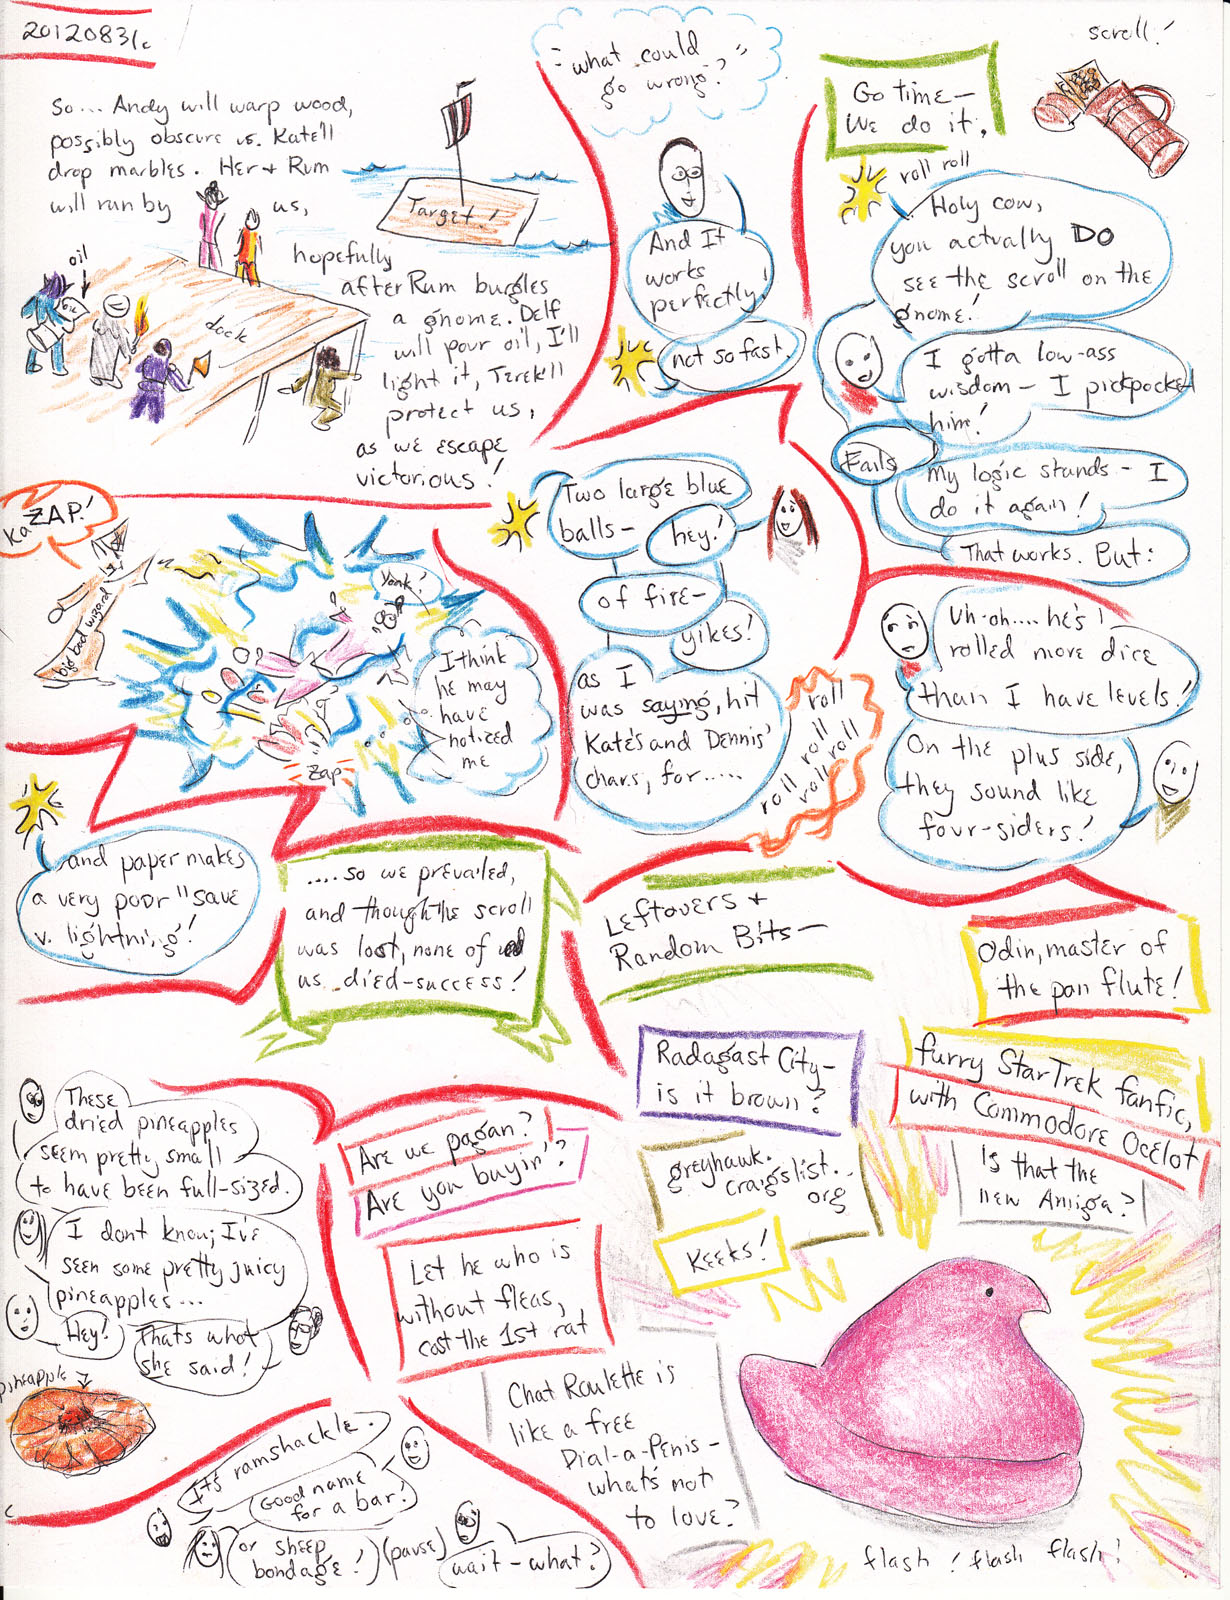 20120831c
So... Andy will warp wood,
possibly obscure us. Kate'll
drop marbles. Her + Rum
will run by us,
hopefully
after Rum burgles
a gnome. Delf
will pour oil, I'll
light it, Terek'll
protect us,
as we escape
victorious!
oil
oil
dock
Target!
"what could
go wrong?"
And It
works
perfectly!
not so fast.
scroll!
Go time—
We do it.
roll roll
Holy cow,
you actually DO
see the scroll on the
gnome!
I gotta low-ass
wisdom— I pickpocket
him!
Fails
My logic stands— I
do it again!
That works. But:
KaZAP!
big bad wizard
Yoink!
I think
he may
have
noticed
me
Zap
Two large blue
balls—
hey!
of fire—
yikes!
as I
was saying, hit
Kate's and Dennis'
chars, for.....
roll
roll
roll roll
roll roll
Uh-oh.... he's
rolled more dice
than I have levels!
On the plus side,
they sound like
four-siders!
and paper makes
a very poor "save
v. lightning!
....so we prevailed,
and though the scroll
was lost, none of
us died-success!
Leftovers +
Random Bits—
Odin, master of
the pan flute!
Radagast City—
is it brown?
furry Star Trek fanfic,
with Commodore Ocelot
Is that the
new Amiga?
These
dried pineapples
seem pretty small
to have been full-sized.
I don't know; I've
seen some pretty juicy
pineapples...
Hey!
Thats what
she said!
pineapple
Are we pagan?
Are you buyin'?
greyhawk.
craigslist.
org
Keeks!
Let he who is
without fleas,
cast the 1st rat
Chat Roulette is
like a free
Dial-a-Penis—
what's not
to love?
It's ramshackle.
Good name
for a bar!
or sheep
bondage!
(pause)
wait-what?
flash! flash flash!